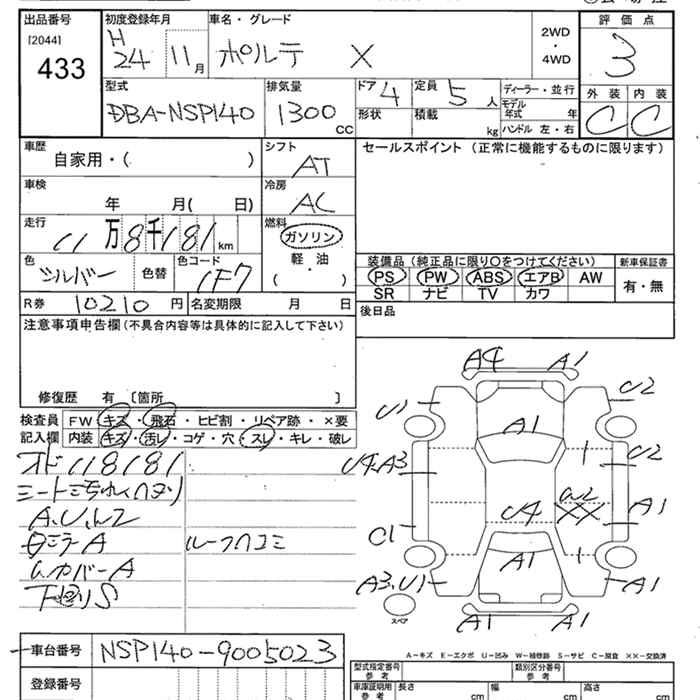 出品番号 初度登録年月 車名・グレード 2WD・4WD 評価点
[2044] 433 H24 11月 ポルテ X 3
型式 排気量 ドア 4 定員 5人 ディーラー・並行 外装 内装
DBA-NSP140 1300 CC 形状 積載 kg モデル年式 年 C C
ハンドル 左・右
車歴 シフト セールスポイント(正常に機能するものに限ります)
自家用・( ) AT
車検 冷房
年 月( 日) AC
走行 燃料
11万8千181km ガソリン
色 色コード 軽・油 装備品(純正品に限り○をつけてください) 新車保証書
シルバー 色替 1F7 ( ) PS PW ABS エアB AW 有・無
SR ナビ TV カワ
R券 10210円 名変期限 月 日 後日品
注意事項申告欄(不具合内容等は具体的に記入して下さい)
修復歴 有 〔箇所 〕
検査員 FW キズ・飛石・ヒビ割・リペア跡・×要
記入欄 内装 キズ・汚レ・コゲ・穴・スレ・キレ・破レ
オド118181
A、U、
ミラーA ルーフハコミ
カバーA
S
A4 A1
U1 U2
A1
U4.A3 U2
U4 W2 XX A1
C1
A1
A3、U1 A1
スペア A1 A1
A-キズ E-エクボ U-凹み W-補修跡 S-サビ C-腐食 ××-交換済
車台番号 NSP140-9005023
型式指定番号 参考 類別区分番号 参考
登録番号 車庫証明用 参考 長さ cm 幅 cm 高さ cm